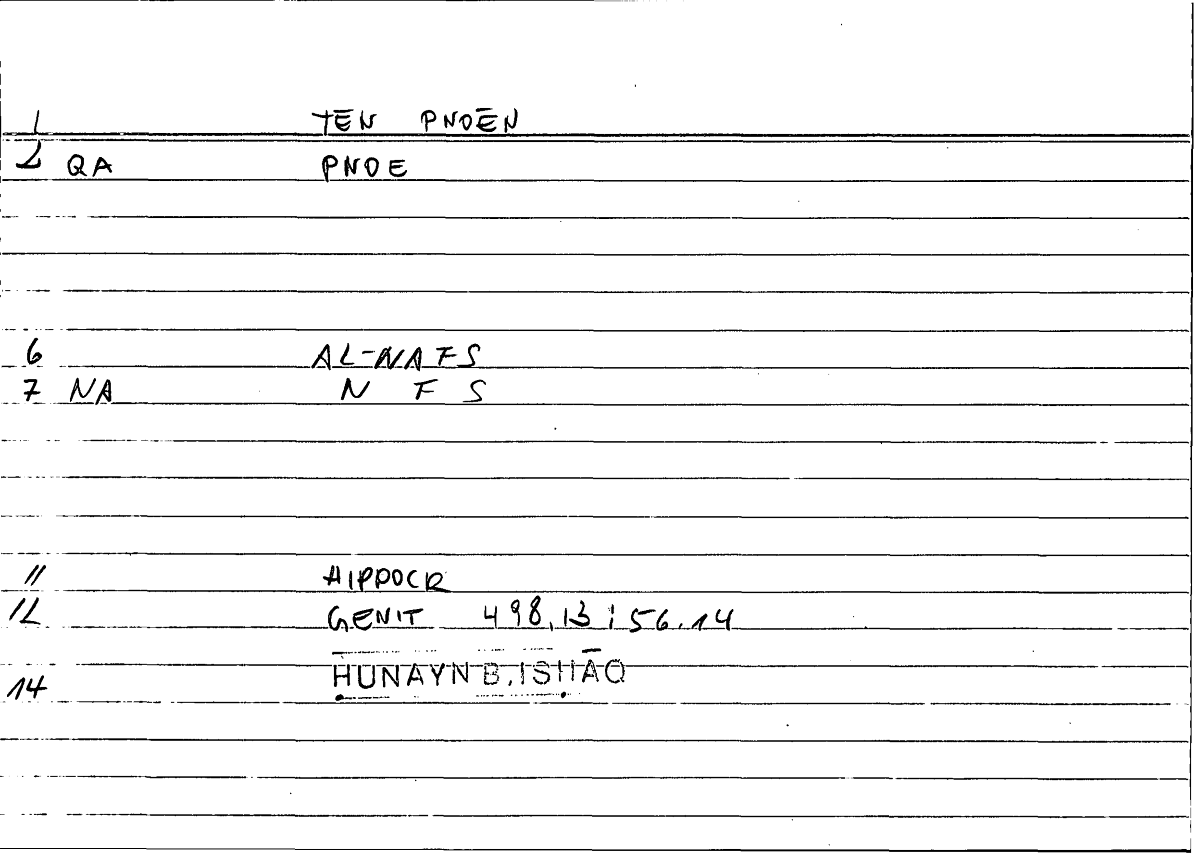 1 TĒN PNOĒN
2 QA PNOE
6 AL-NAFS
7 NA N F S
11 HIPPOCR
12 GENIT 498,13 ; 56.14
14 ḤUNAYN B. ISḤĀQ